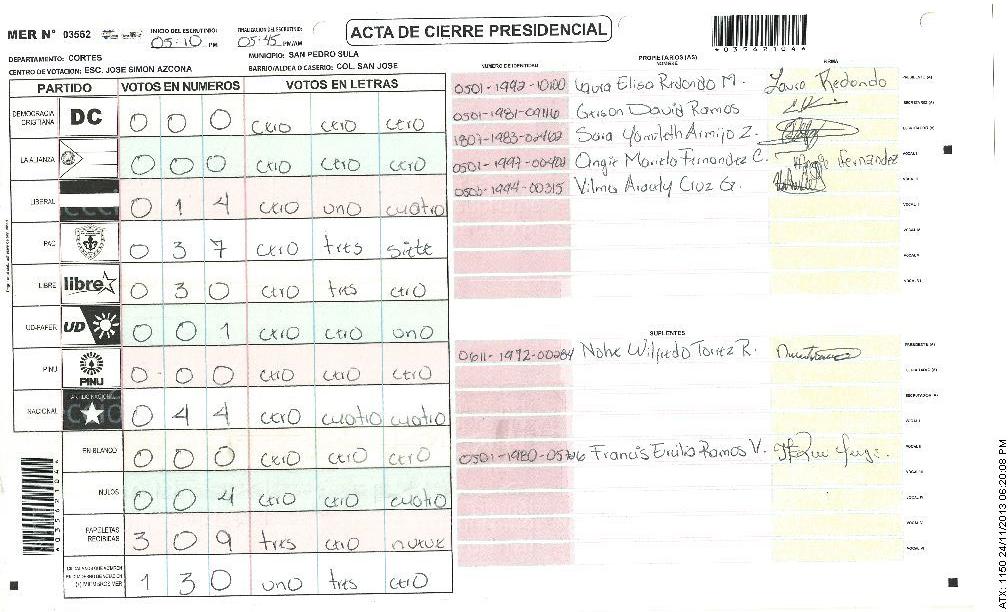 MER N° 03562
INICIO DEL ESCRUTINIO: 05:10 PM
FINALIZACION DEL ESCRUTINIO: 05:45 PM/AM
ACTA DE CIERRE PRESIDENCIAL
*035621044
DEPARTAMENTO: CORTES
MUNICIPIO: SAN PEDRO SULA
CENTRO DE VOTACION: ESC. JOSE SIMON AZCONA
BARRIO/ALDEA O CASERIO: COL. SAN JOSE
PARTIDO VOTOS EN NUMEROS VOTOS EN LETRAS
DEMOCRACIA CRISTIANA DC 0 0 0 cero cero cero
LA ALIANZA 0 0 0 cero cero cero
LIBERAL 0 1 4 cero uno cuatro
PAC 0 3 7 cero tres siete
LIBRE libre 0 3 0 cero tres cero
UD-FAPER UD 0 0 1 cero cero uno
PINU PINU 0 0 0 cero cero cero
NACIONAL 0 4 4 cero cuatro cuatro
EN BLANCO 0 0 0 cero cero cero
NULOS 0 0 4 cero cero cuatro
PAPELETAS RECIBIDAS 3 0 9 tres cero nueve
1 3 0 uno tres cero
NUMERO DE IDENTIDAD PROPIETARIOS (AS) NOMBRE FIRMA
0501-1992-10100 Laura Elisa Redondo M. Laura Redondo PRESIDENTE (A)
0501-1981-09116 Gerson David Ramos SECRETARIO (A)
1807-1983-02462 Sara Yamileth Armijo Z. ESCRUTADOR (A)
Angie Mariela Fernandez C. Angie Fernández VOCAL I
0505-1994-00315 Vilma Aracely Cruz G. VOCAL II
SUPLENTES
0611-1972-00284 Nohe Wilfredo Torrez R. PRESIDENTE (A)
SECRETARIO (A)
ESCRUTADOR (A)
VOCAL I
Francis Ercilia Ramos V. VOCAL II
ATX: 1150 24/11/2013 06:20:08 PM